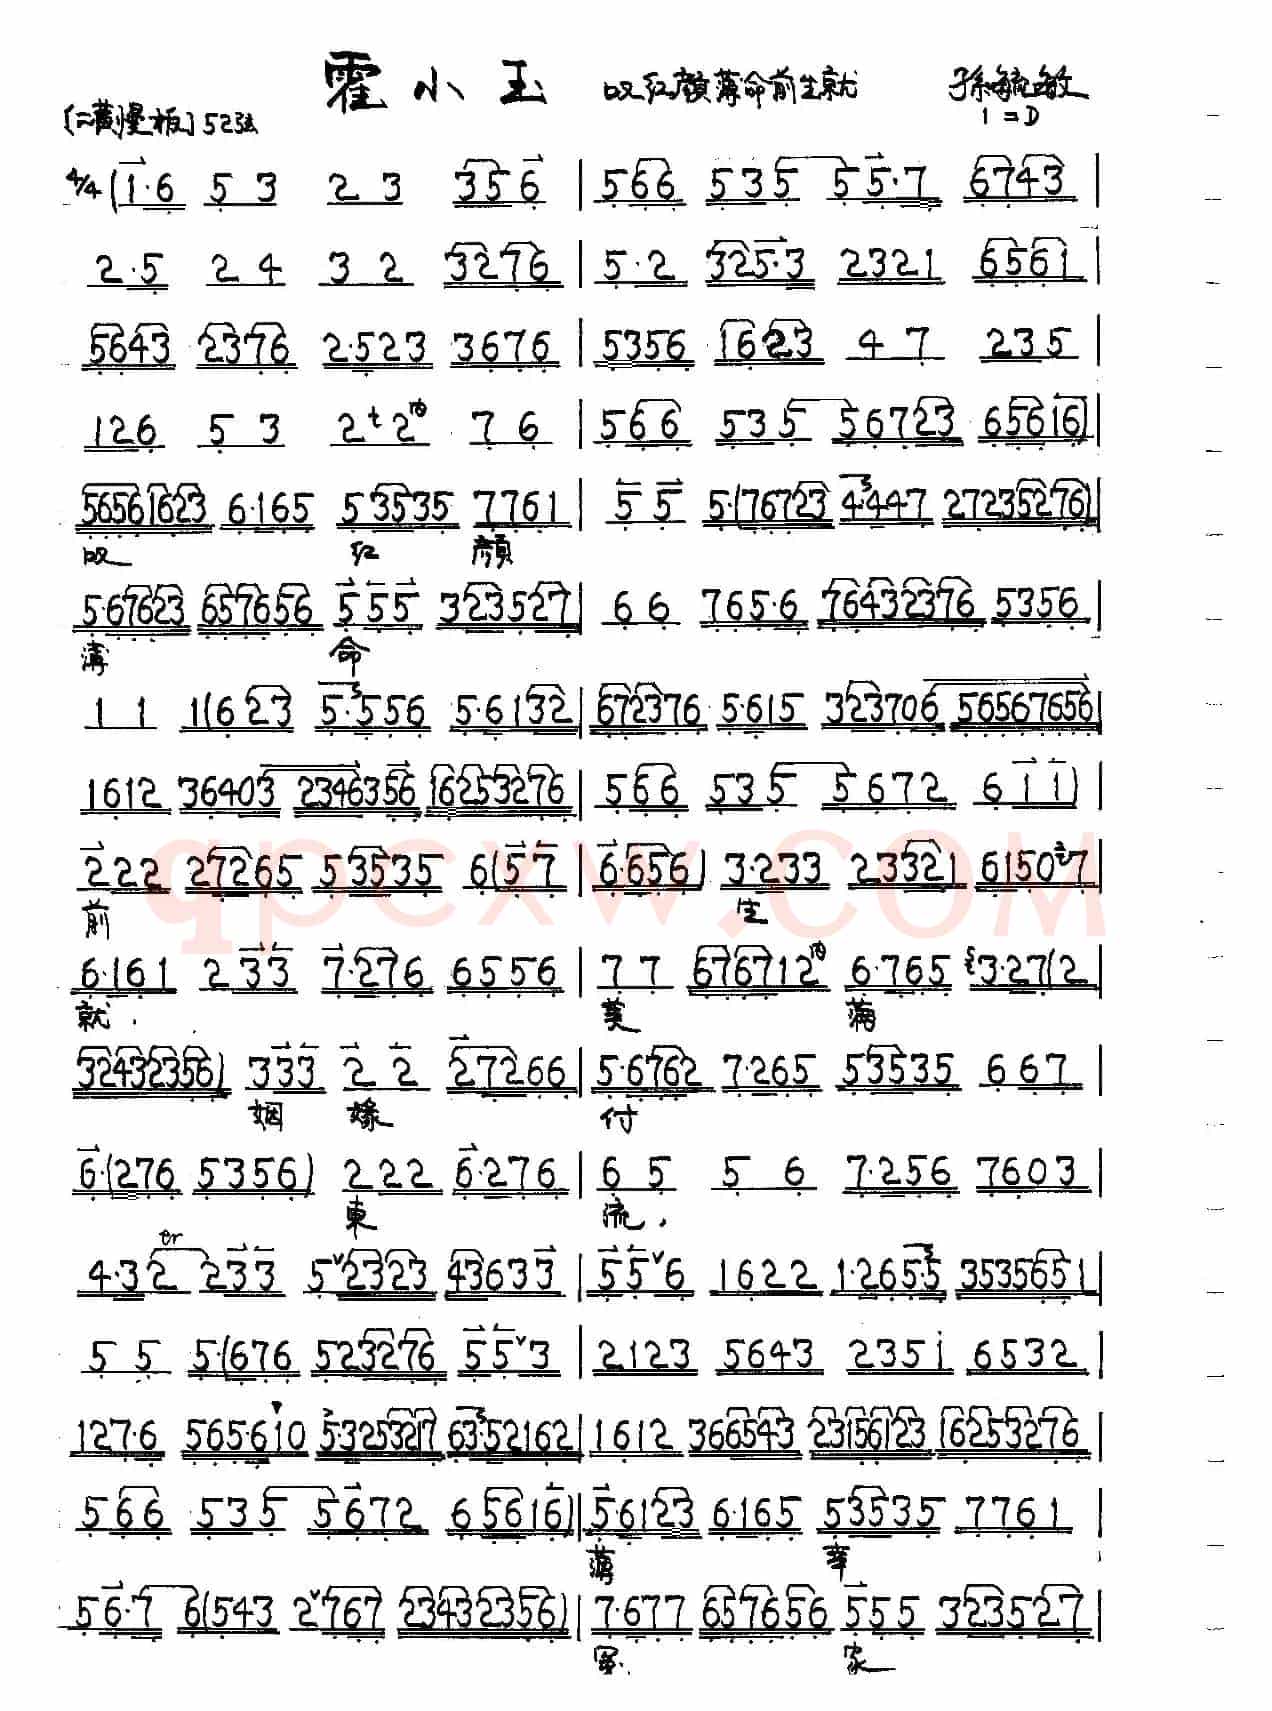 霍小玉 叹红颜薄命前生就 孙毓敏
(二黄慢板) 52弦 1=D
4/4 (1·6 53 23 356 | 566 535 55·7 6743 |
2·5 24 32 3276 | 5·2 325·3 2321 6561 |
5643 2376 2·523 3676 | 5356 1623 47 235 |
126 53 22 76 | 566 535 56723 65616)
56561623 6·165 53535 7761 | 55 5·(76723 4·447 27235276)
叹 红 颜
5·67623 657656 555 323527 | 66 765·6 76432376 5356 |
薄 命
11 1(623 5·556 5·6132 | 672376 5·615 323706 56567656 |
1612 36403 2346356 16253276 | 566 535 5672 611)
222 27265 53535 6(57 | 6·656) 3·233 23321 61507 |
前 生
6·161 233 7·276 6556 | 77 676712 6·765 3·27(2 |
就, 美 满
32432356) 333 22 27266 | 5·6762 7·265 53535 667 |
姻 缘 付
6·(276 5356) 222 6·276 | 65 56 7·256 7603 |
東 流,
tr
4·32 233 52323 43633 | 556 1622 1·2655 3535651
55 5·(676 523276 553 | 2123 5643 235i 6532 |
127·6 565·610 5·325327 63·52162 | 1612 366543 23156123 16253276
566 535 5672 65616) | 5·6123 6·165 53535 7761
薄 幸
56·7 6(543 2767 23432356) | 7·677 657656 555 323527 |
冤 家
qpcxw.COM